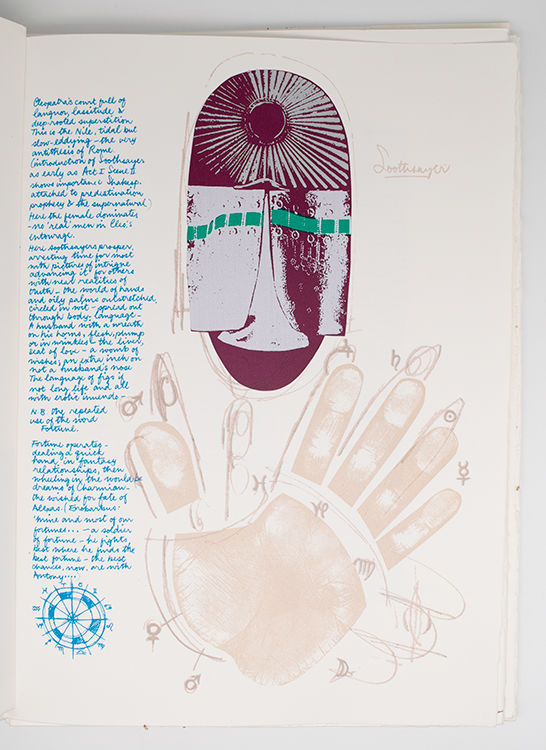 Cleopatra's court full of
languor, lassitude &
deep-rooted superstition
This is the Nile, tidal but
slow-eddying – the very
antithesis of Rome.
(introduction of Soothsayer
as early as Act I Scene II
shows importance Shakesp.
attached to predestination,
prophecy & the supernatural.)
Here the female dominates
– no 'real' men in Cleo's
entourage.
Here soothsayers prosper,
arresting time for most
with pictures of intrigue
advancing it for others
with near realities of
truth – the world of hands
and oily palms outstretched,
circled in wit – spread out
through body-language –
A husband with a wreath
on his horns, flesh, plump
or in wrinkles – the liver,
seat of love – a womb of
wishes, an extra inch on
not a husband's nose
The language of figs if
not long life and all
with erotic innuendo –
N.B the repeated
use of the word
Fortune.
Fortune operates –
dealing a quick
hand in fantasy
relationships, then
wheeling in the would be
dreams of Charmian –
the wished for fate of
Alexas. (Enobarbus:
'mine and most of our
fortunes... – a soldier
of fortune – he fights
best where he finds the
best fortune – the best
chances, now, are with
Antony....
Soothsayer